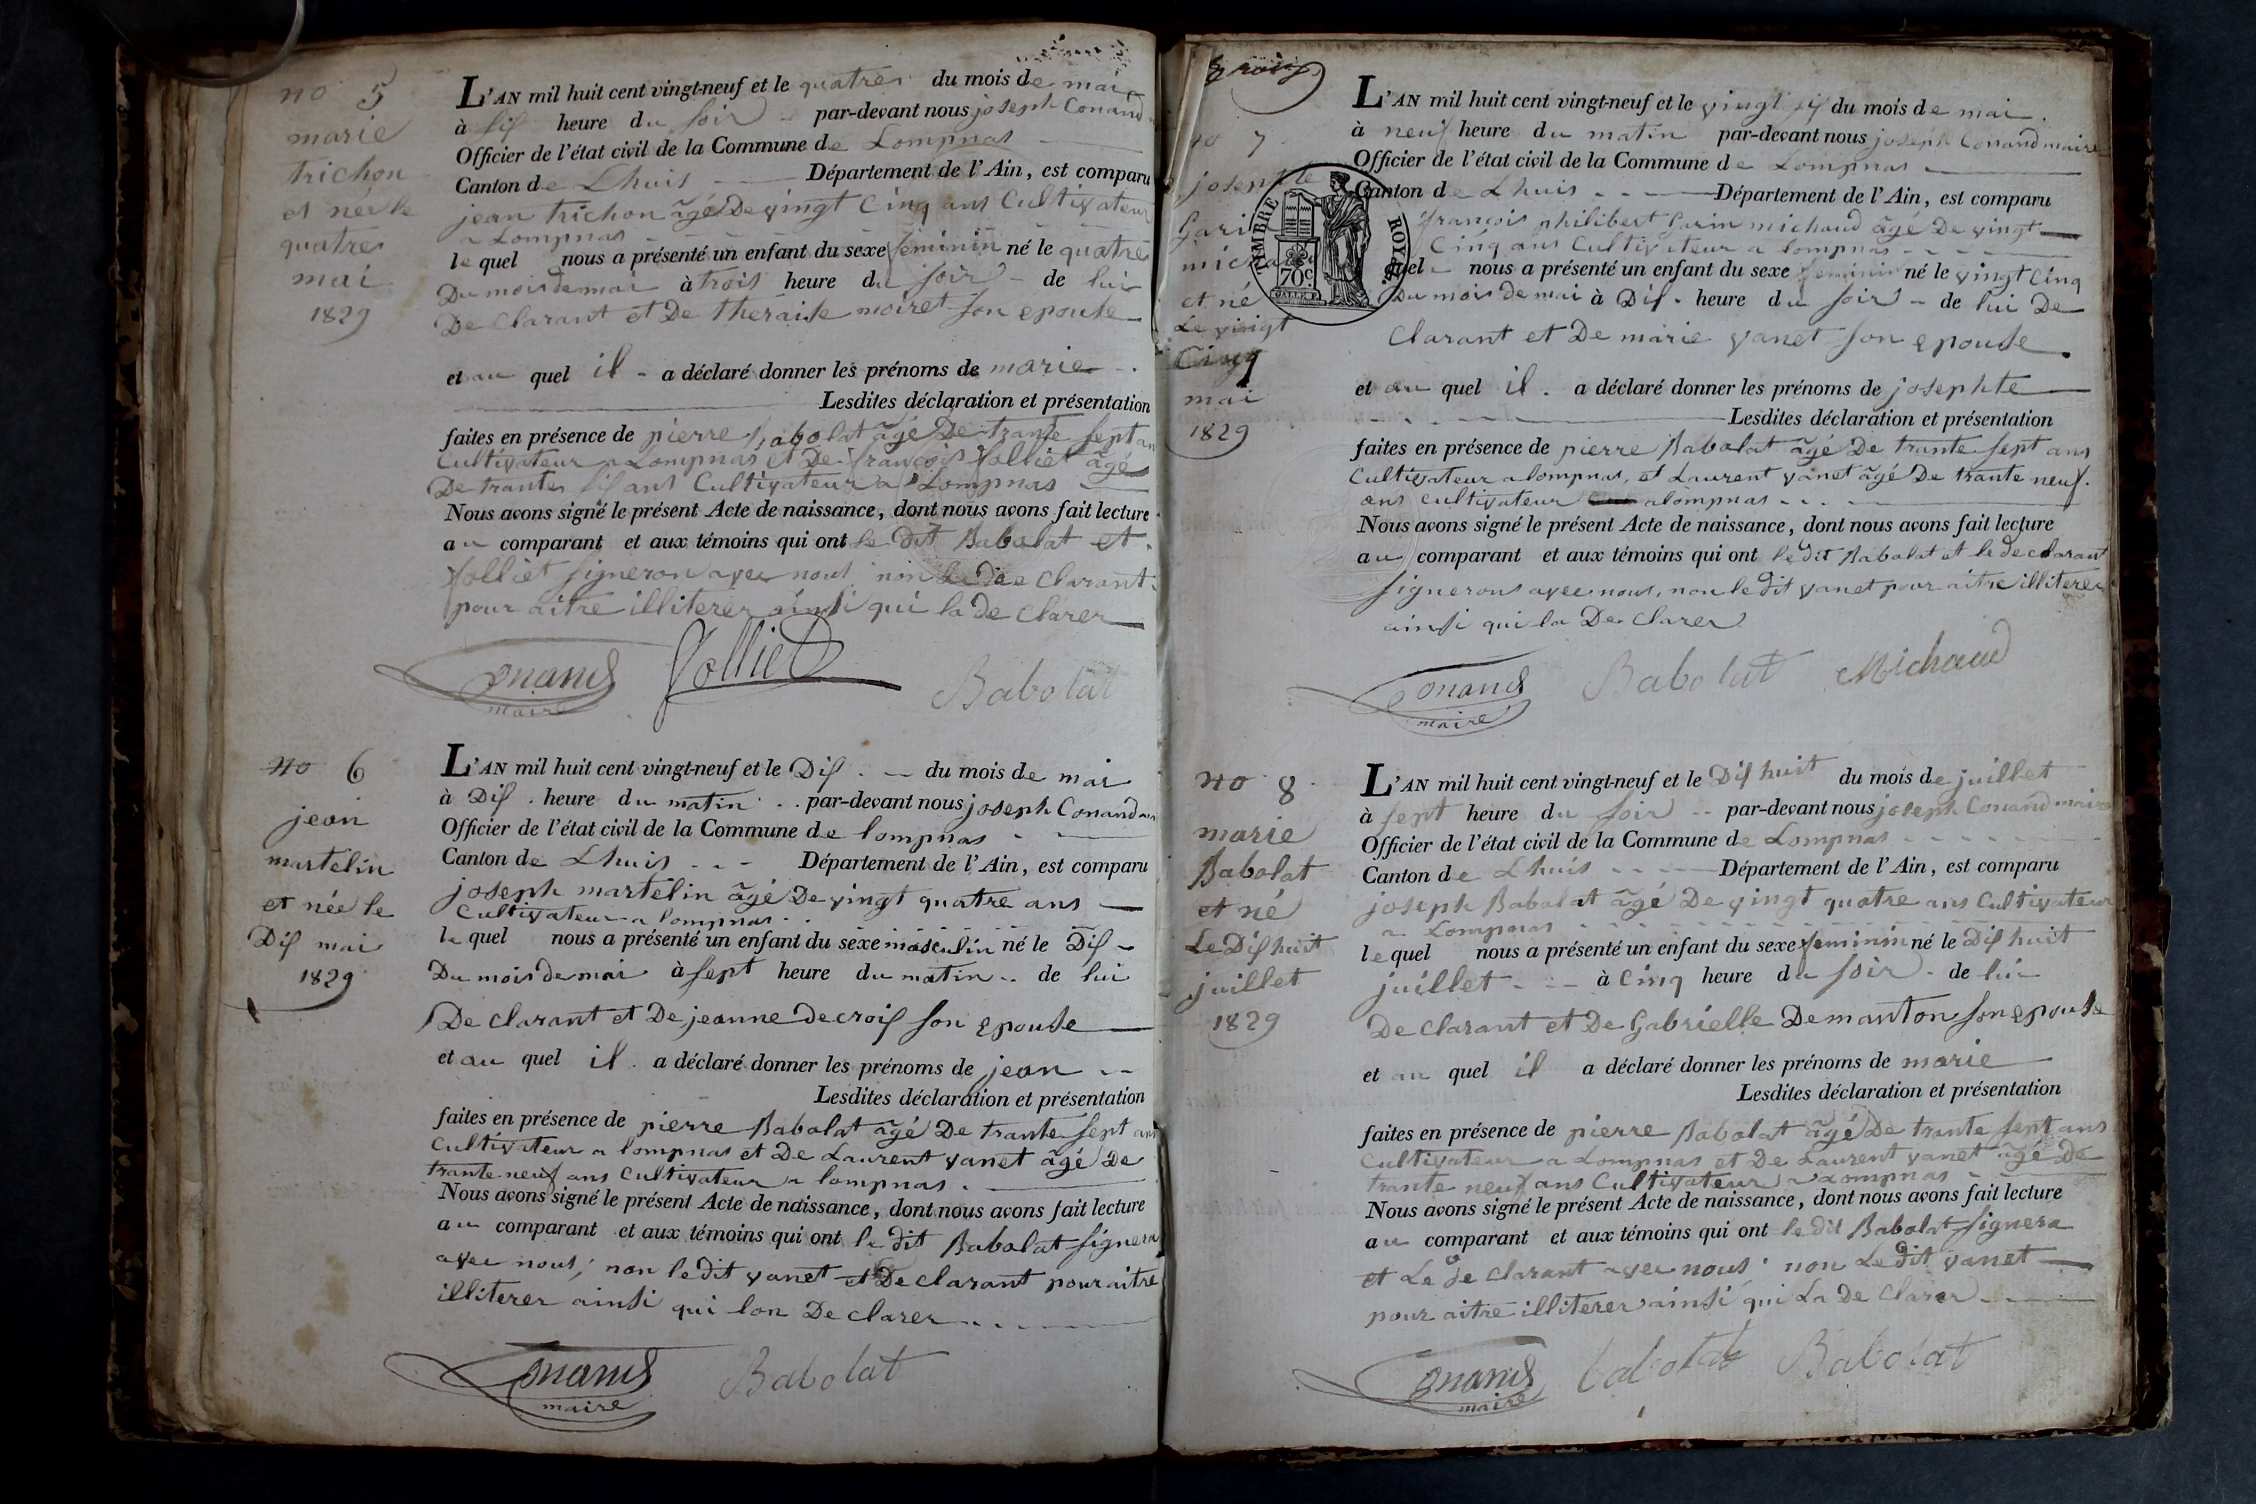 no 5
marie
trichon
et née le
quatre
mai
1829
L'AN mil huit cent vingt-neuf et le quatre du mois de mai
à sis heure du soir par-devant nous joseph Conand
Officier de l'état civil de la Commune de Lompnas
Canton de Lhuis Département de l'Ain, est comparu
jean trichon âgé De vingt Cinq ans Cultivateur
a Lompnas
le quel nous a présenté un enfant du sexe feminin né le quatre
Du mois de mai à trois heure du soir de lui
De Clarant et De theraise moiret son epouse
et au quel il a déclaré donner les prénoms de marie
Lesdites déclaration et présentation
faites en présence de pierre Babolat âgé De trante sept ans
Cultivateur a Lompnas et De françois Jolliet âgé
De trante sis ans Cultivateur a Lompnas
Nous avons signé le présent Acte de naissance, dont nous avons fait lecture
au comparant et aux témoins qui ont le dit Babolat et
Jolliet signeron avec nous le De Clarant
pour aitre illiterer ainsi qui la de Clarer
Conand Jolliet Babolat
maire
no 6
jean
martelin
et née le
Dis mai
1829
L'AN mil huit cent vingt-neuf et le Dis du mois de mai
à Dis heure du matin par-devant nous joseph Conand
Officier de l'état civil de la Commune de lompnas
Canton de Lhuis Département de l'Ain, est comparu
joseph martelin âgé De vingt quatre ans
Cultivateur a lompnas
le quel nous a présenté un enfant du sexe masculin né le Dis
Du mois de mai à sept heure du matin de lui
De clarant et De jeanne decrois son epouse
et au quel il a déclaré donner les prénoms de jean
Lesdites déclaration et présentation
faites en présence de pierre Babolat âgé De trante sept ans
Cultivateur a lompnas et De Laurent vanet âgé De
trante neuf ans Cultivateur a lompnas
Nous avons signé le présent Acte de naissance, dont nous avons fait lecture
au comparant et aux témoins qui ont le dit Babolat signera
avec nous, non le dit vanet et De clarant pour aitre
illiterer ainsi qui lon De clarer
Conand Babolat
maire
no 7
josephte
Garin
micha
et né
Le vingt
Cinq
mai
1829
TIMBRE ROYAL
70c
L'AN mil huit cent vingt-neuf et le vingt sis du mois de mai
à neuf heure du matin par-devant nous joseph Conand maire
Officier de l'état civil de la Commune de Lompnas
Canton de Lhuis Département de l'Ain, est comparu
françois philibert Garin michaud âgé De vingt
Cinq ans Cultivateur a lompnas
quel nous a présenté un enfant du sexe feminin né le vingt Cinq
Du mois de mai à Dis heure du soir de lui De
Clarant et De marie vanet son epouse
et au quel il a déclaré donner les prénoms de josephte
Lesdites déclaration et présentation
faites en présence de pierre Babolat âgé De trante sept ans
Cultivateur a lompnas, et Laurent vanet âgé De trante neuf
ans Cultivateur a lompnas
Nous avons signé le présent Acte de naissance, dont nous avons fait lecture
au comparant et aux témoins qui ont le dit Babolat et le declarant
signerons avec nous, non le dit vanet pour aitre illiterer
ainsi qui la De clarer
Conand Babolat Michaud
maire
no 8
marie
Babolat
et né
Le Dis huit
juillet
1829
L'AN mil huit cent vingt-neuf et le Dis huit du mois de juillet
à sept heure du soir par-devant nous joseph Conand maire
Officier de l'état civil de la Commune de Lompnas
Canton de Lhuis Département de l'Ain, est comparu
joseph Babolat âgé De vingt quatre ans Cultivateur
a Lompnas
le quel nous a présenté un enfant du sexe feminin né le Dis huit
juillet à Cinq heure du soir de lui
De Clarant et De Gabrielle Demanton son epouse
et au quel il a déclaré donner les prénoms de marie
Lesdites déclaration et présentation
faites en présence de pierre Babolat âgé De trante sept ans
Cultivateur a Lompnas et De Laurent vanet âgé De
trante neuf ans Cultivateur a Lompnas
Nous avons signé le présent Acte de naissance, dont nous avons fait lecture
au comparant et aux témoins qui ont le dit Babolat signera
et Le De Clarant avec nous non Le dit vanet
pour aitre illiterer ainsi qui La De Clarer
Conand babolat Babolat
maire